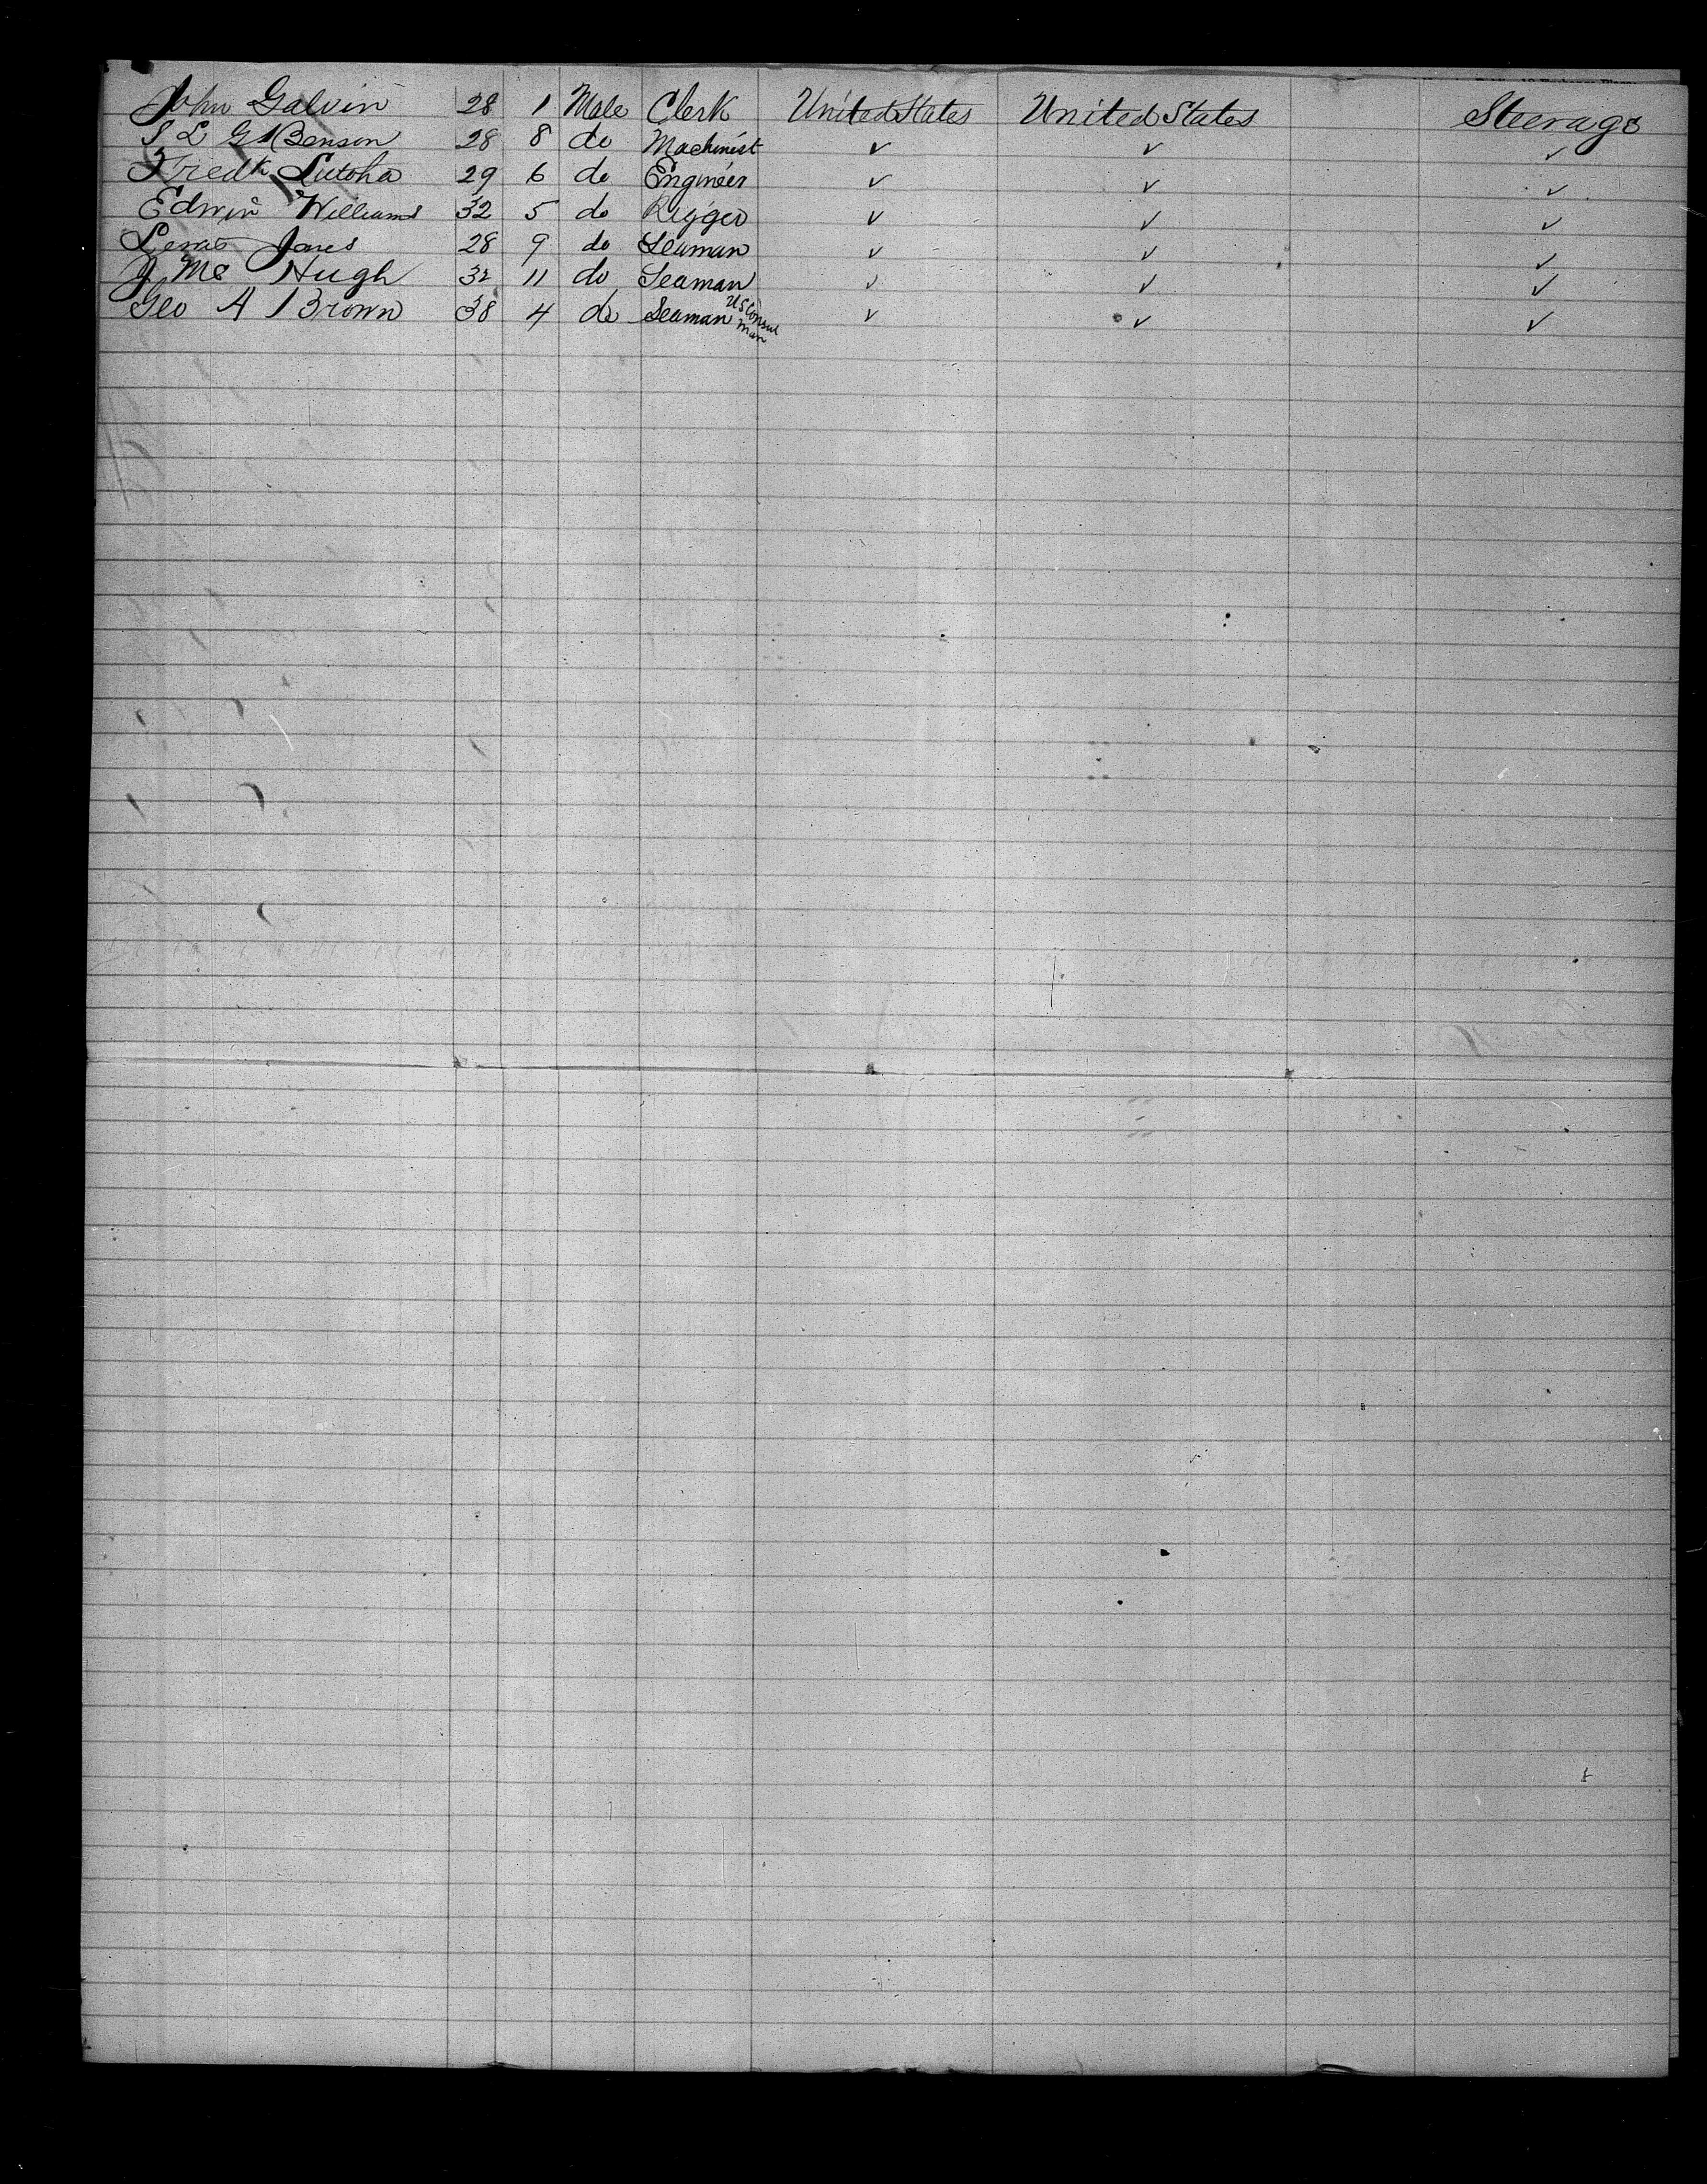 John Galvin 28 1 Male Clerk United States United States Steerage
S L G Benson 28 8 do Machinist ✓ ✓ ✓
Fredk 29 6 do Engineer ✓ ✓ ✓
Edwin Williams 32 5 do Rigger ✓ ✓ ✓
Jones 28 9 do Seaman ✓ ✓ ✓
J Mc Hugh 32 11 do Seaman ✓ ✓ ✓
Geo A Brown 38 4 do Seaman US Consul man ✓ ✓ ✓